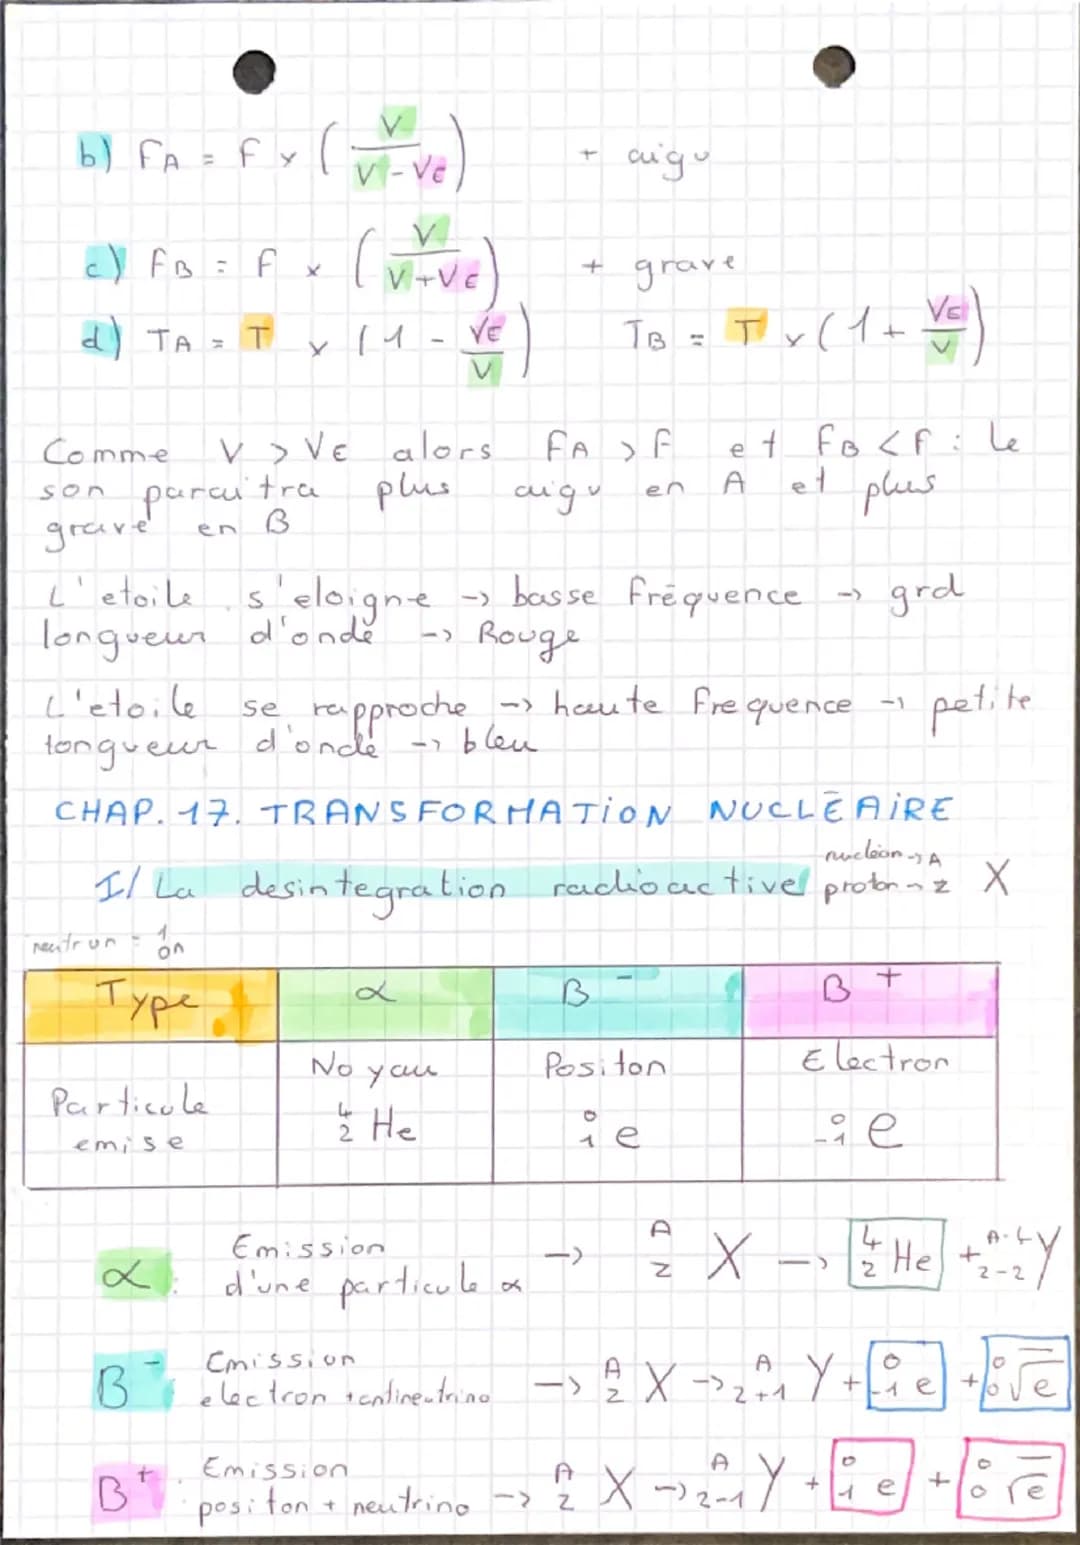 b) FA = f x (V / V - VE) + aigu
c) FB = f x (V / V + VE) + grave
d) TA = T x (1 - VE / V) TB = T x (1 + VE / V)
Comme V > VE alors FA > F et FB < F : le
son paraitra plus aigu en A et plus
grave en B
L'etoile s'eloigne -> basse fréquence -> grd
longueur d'onde -> Rouge
L'etoile se rapproche -> haute frequence -> petite
longueur d'onde -> bleu
CHAP. 17. TRANSFORMATION NUCLÉAIRE
nucléon -> A
I/ La desintegration radioactive proton -> Z X
neutron = 1 0 n
Type α B⁻ B⁺
Particule emise
Noyau ⁴₂ He
Positon ⁰₁ e
Electron ⁰₋₁ e
α : Emission d'une particule α -> ᴬ Z X -> ⁴₂ He + A-4 Z-2 Y
B⁻ Emission electron + antineutrino -> A Z X -> A Z+1 Y + 0 -1 e + 0 0 v̅e
B⁺ . Emission positon + neutrino -> A Z X -> A Z-1 Y + 0 1 e + 0 0 v̅e